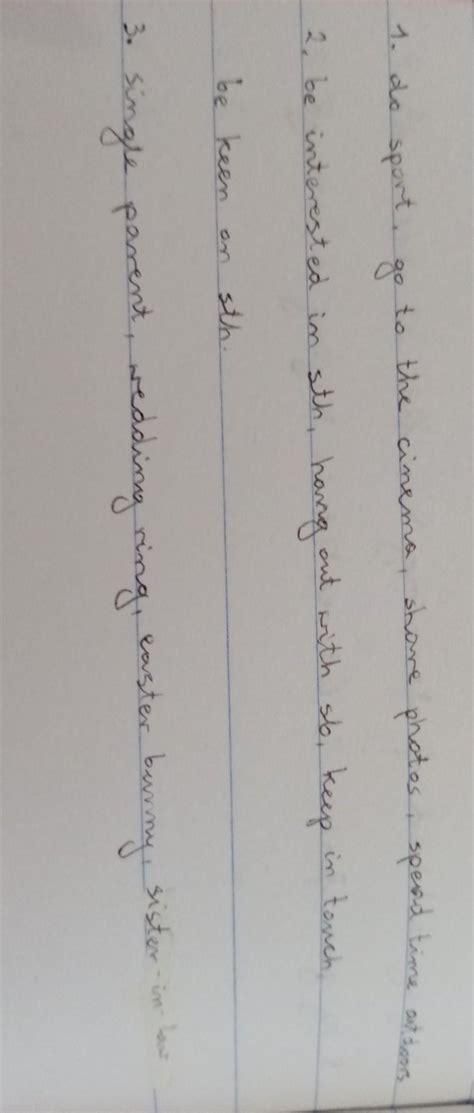 1. do sport, go to the cinema, share photos, spend time outdoors
2. be interested in sth, hang out with sb, keep in touch,
be keen on sth.
3. single parent, wedding ring, easter bunny, sister-in-law